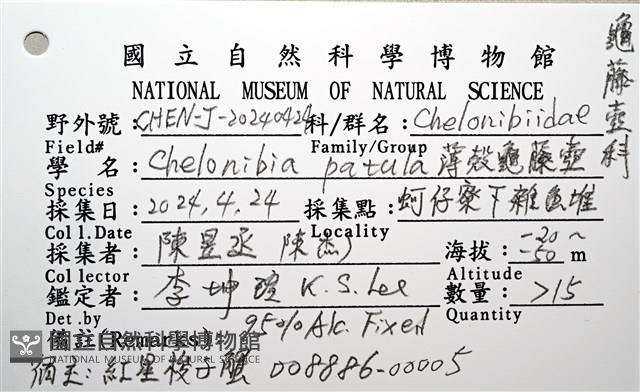 國立自然科學博物館
NATIONAL MUSEUM OF NATURAL SCIENCE
龜藤壺科
野外號:CHEN-J-20240424 科/群名:Chelonibiidae
Field# Family/Group
學 名:Chelonibia patula 薄殼龜藤壺
Species
採集日:2024.4.24 採集點:蚵仔寮下雜魚堆
Coll.Date Locality
採集者:陳昱丞 陳杰 海拔:-20~-50 m
Collector Altitude
鑑定者:李坤瑄 K.S.Lee 數量:>15
Det.by Quantity
備註(Remarks) 95% Alc. Fixed
國立自然科學博物館
NATIONAL MUSEUM OF NATURAL SCIENCE
個主:紅星梭子蟹 008886-00005